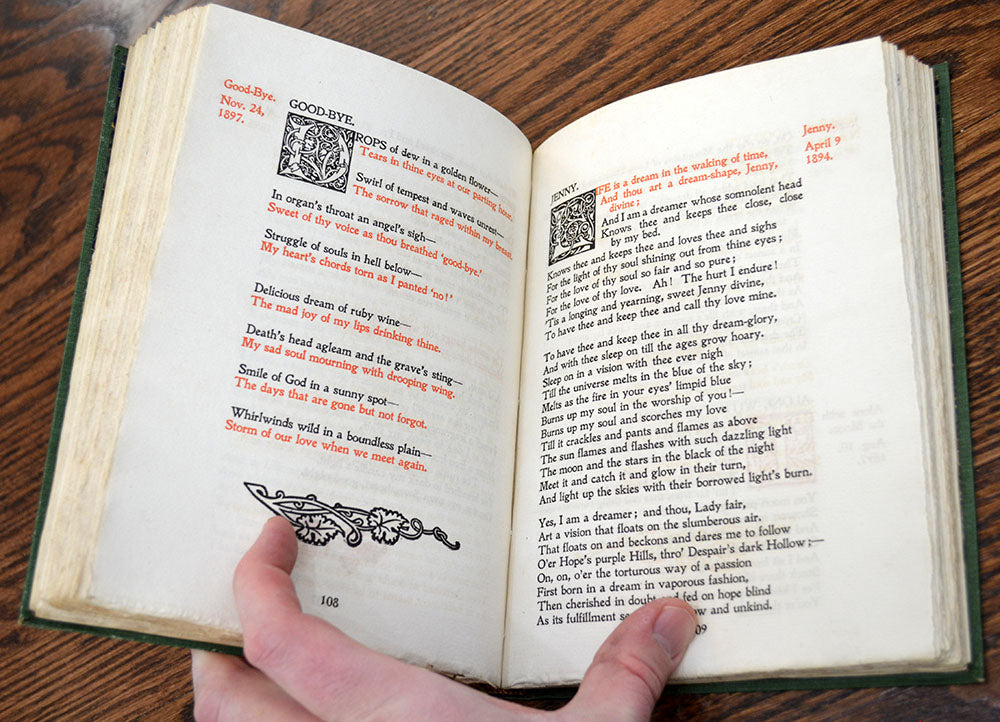 Good-Bye.
Nov. 24,
1897.
GOOD-BYE.
DROPS of dew in a golden flower—
Tears in thine eyes at our parting hour.
Swirl of tempest and waves unrest—
The sorrow that raged within my breast.
In organ's throat an angel's sigh—
Sweet of thy voice as thou breathed 'good-bye.'
Struggle of souls in hell below—
My heart's chords torn as I panted 'no!'
Delicious dream of ruby wine—
The mad joy of my lips drinking thine.
Death's head agleam and the grave's sting—
My sad soul mourning with drooping wing.
Smile of God in a sunny spot—
The days that are gone but not forgot.
Whirlwinds wild in a boundless plain—
Storm of our love when we meet again.
108
Jenny.
April 9
1894.
JENNY.
LIFE is a dream in the waking of time,
And thou art a dream-shape, Jenny,
divine;
And I am a dreamer whose somnolent head
Knows thee and keeps thee close, close
by my bed.
Knows thee and keeps thee and loves thee and sighs
For the light of thy soul shining out from thine eyes;
For the love of thy soul so fair and so pure;
For the love of thy love. Ah! The hurt I endure!
'Tis a longing and yearning, sweet Jenny divine,
To have thee and keep thee and call thy love mine.
To have thee and keep thee in all thy dream-glory,
And with thee sleep on till the ages grow hoary.
Sleep on in a vision with thee ever nigh
Till the universe melts in the blue of the sky;
Melts as the fire in your eyes' limpid blue
Burns up my soul in the worship of you!—
Burns up my soul and scorches my love
Till it crackles and pants and flames as above
The sun flames and flashes with such dazzling light
The moon and the stars in the black of the night
Meet it and catch it and glow in their turn,
And light up the skies with their borrowed light's burn.
Yes, I am a dreamer; and thou, Lady fair,
Art a vision that floats on the slumberous air.
That floats on and beckons and dares me to follow
O'er Hope's purple Hills, thro' Despair's dark Hollow;—
On, on, o'er the torturous way of a passion
First born in a dream in vaporous fashion,
Then cherished in doubt and fed on hope blind
As its fulfillment and unkind.
09